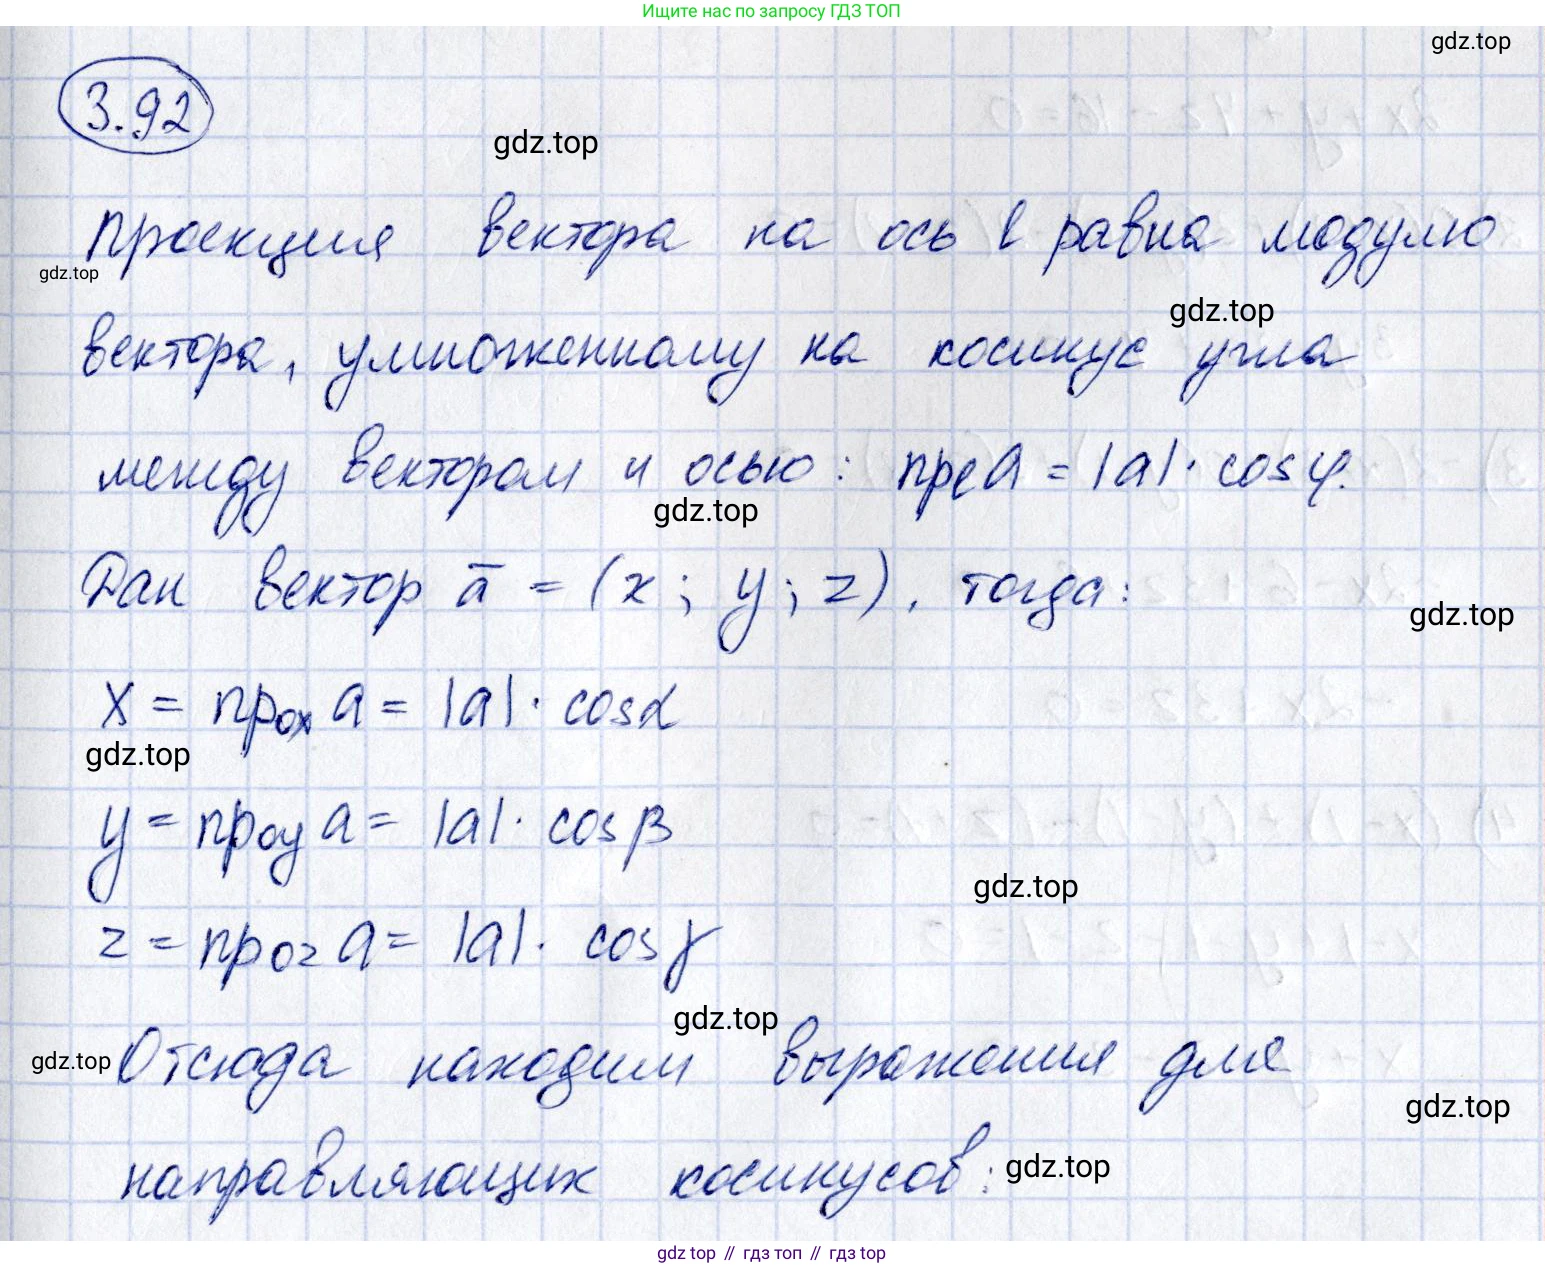 Ищите нас по запросу ГДЗ ТОП
gdz.top
3.92
gdz.top
Проекция вектора на ось l равна модулю
gdz.top
gdz.top
вектора, умноженному на косинус угла
между вектором и осью: прℓa = |a|· cosφ.
gdz.top
Дан вектор a̅ = (x; y; z), тогда:
gdz.top
x = прox a = |a|· cosα
gdz.top
y = прoy a = |a|· cosβ
gdz.top
z = прoz a = |a|· cosγ
gdz.top
gdz.top
Отсюда находим выражения для
gdz.top
направляющих косинусов:
gdz.top
gdz top // гдз топ // gdz top